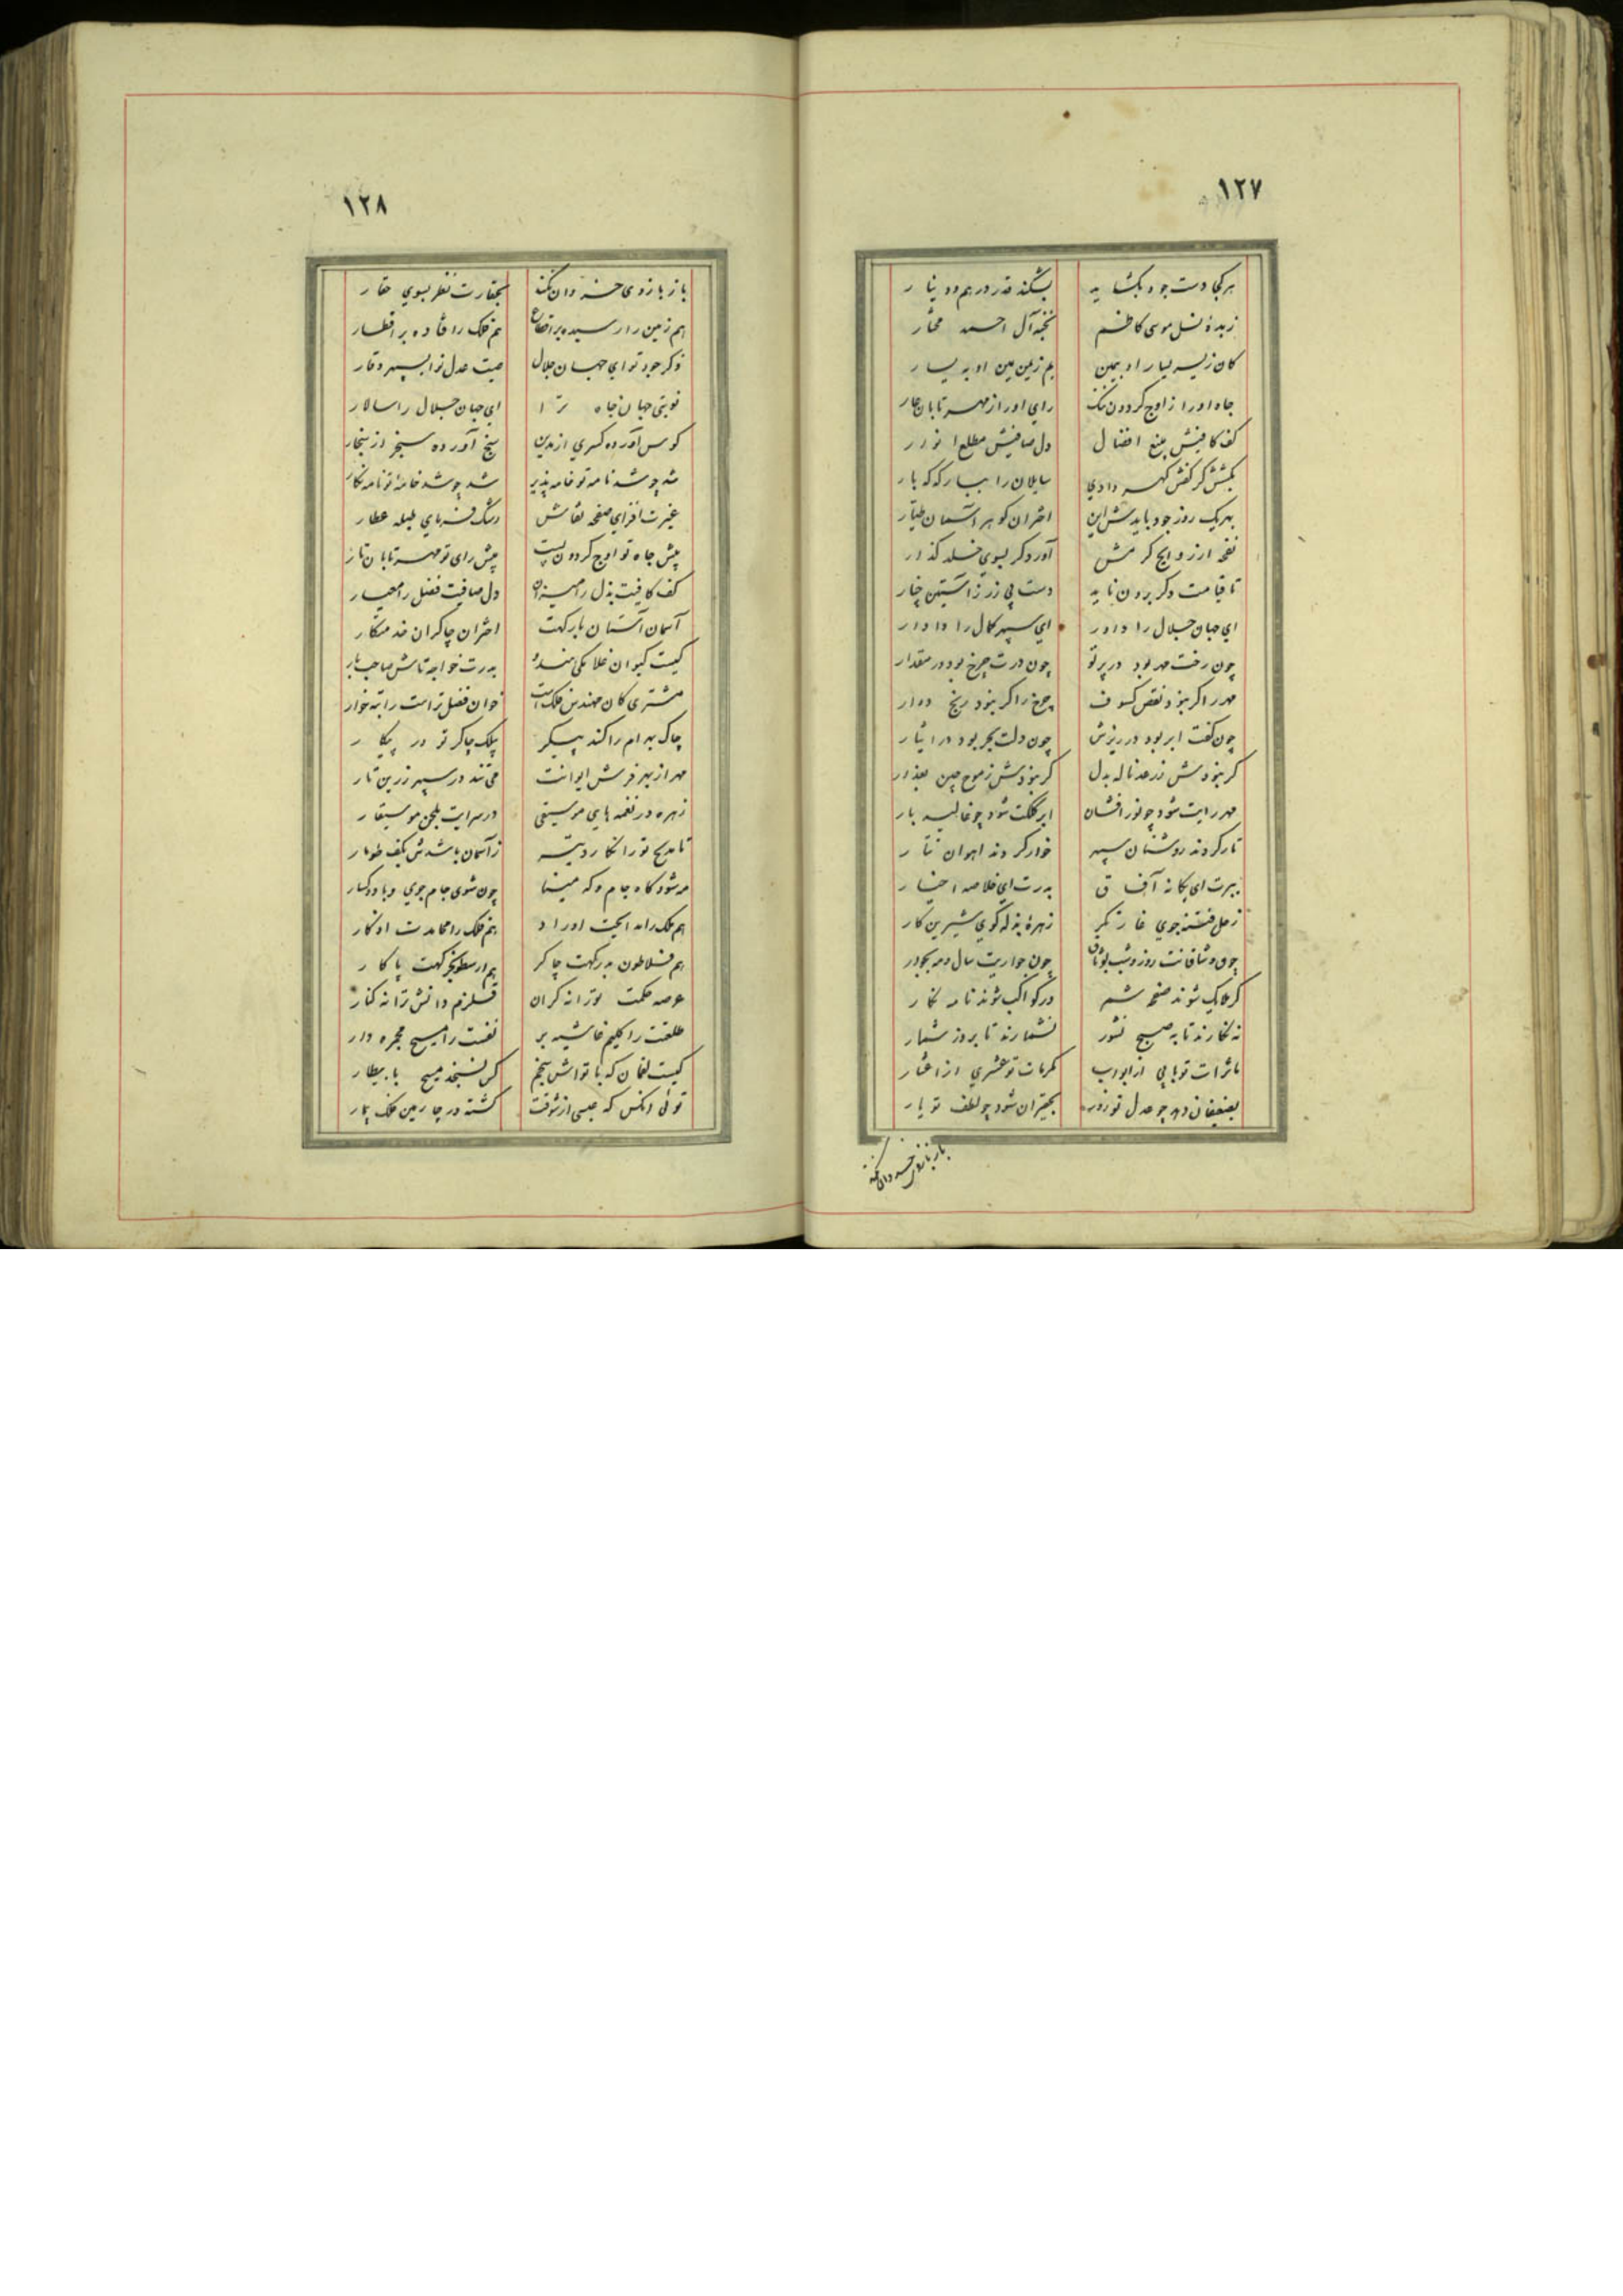 ١٢٧
هر کجا دست جود بگشاید بشکند قدر درهم و دینار
زبدهٔ نسل موسی کاظم نخبهٔ آل احمد مختار
کان ز یسر یسار او بیمین یم ز یمن یمین او به یسار
جاه او را ز اوج گردون ننگ رای او را ز مهر تابان عار
کف کافیش منبع افضال دل صافیش مطلع انوار
سایلان را ببار که که بار
بهر یک روز جود بایدش این اختران گوهر آسمان طیار
نفحه ار ز روایح کرمش آورد کر بسوی خلد گذار
تا قیامت دگر برون ناید دست بی زر ز آستین چنار
ای جهان جلال را داور ای سپهر کمال را دادار
چون رخت مهر بود در پرتو چون درت چرخ بود در مقدار
مهر را گر نبود نقص کسوف چرخ را گر نبود رنج دوار
چون کفت ابر بود در ریزش چون دلت بحر بود در ایثار
گر نبودش ز رعد ناله بدل گر نبودش ز موج چین بعذار
مهر رایت شود چو نور افشان ابر کلکت شود چو غالیه بار
تار گردند روشنان سپهر خوار گردند آهوان تتار
ببرت ای یگانه آفاق بدرت ای خلاصه اخیار
زحل فتنه جوی غازنگر زهرهٔ بذله گوی شیرین کار
چون وشاقانت روز و شب بوثاق چون جواریت سال و مه بجوار
گر ملایک شوند صفحه شمر ور کواکب شوند نامه نگار
نه نگارند تا به صبح نشور نشمارند تا بروز شمار
ماثرات تو بابی از ابواب مکرمات تو عشری از اعشار
بضعیفان دهد چو عدل تو زور بحقیران شود چو لطف تو یار
باز بازوی خسروان نکند
١٢٨
باز بازوی خسروان نکند بحقارت نظر بسوی حقار
هم زمین را رسیده بر اقطاع هم فلک را فتاده بر اقطار
ذکر جود تو ای جهان جلال صیت عدل تو ای سپهر وقار
نوبتی جهان جاه ترا ای جهان جلال را سالار
کوس آورده کسری از مداین سنج آورده سنجر از سنجار
شد چو شد نامه تو خامه پذیر شد چو شد خامهٔ تو نامه نگار
غیرت افزای صفحه نقاش رشک فرمای طبله عطار
پیش جاه تو اوج گردون پست پیش رای تو مهر تابان تار
کف کافیت بذل را میزان دل صافیت فضل را معیار
آسمان آستان بارگهت اختران چاکران خدمتکار
کیست کیوان غلامکی هندو بدرت خواجه تاش صاحب بار
مشتری کان مهندس فلک است خوان فضل تراست راتبه خوار
چاک بهرام را کند پیکر پیلک چاکر تو در پیکار
مهر از بهر فرش ایوانت می تند در سپهر زرین تار
زهره در نغمه های موسیقی در سرایت بلحن موسیقار
تا مدیح تو را نگارد تیر ز آسمان باشدش بکف طومار
مه شود گاه جام و گه مینا چون شوی جام جوی و باده گسار
هم ملک را مدایحت اوراد هم فلک را محامدت اذکار
هم فلاطون بدرگهت چاکر هم ارسطو بخرگهت پاکار
عرصه حکمت تو را نه کران قلزم دانش ترا نه کنار
طلعتت را کلیم غاشیه بر نفست را مسیح مجمره دار
کیست لقمان که با تواش سنجم کس نسنجد مسیح با بیطار
توئی آنکس که عیسی از شوقت گشته در چارمین فلک بیمار